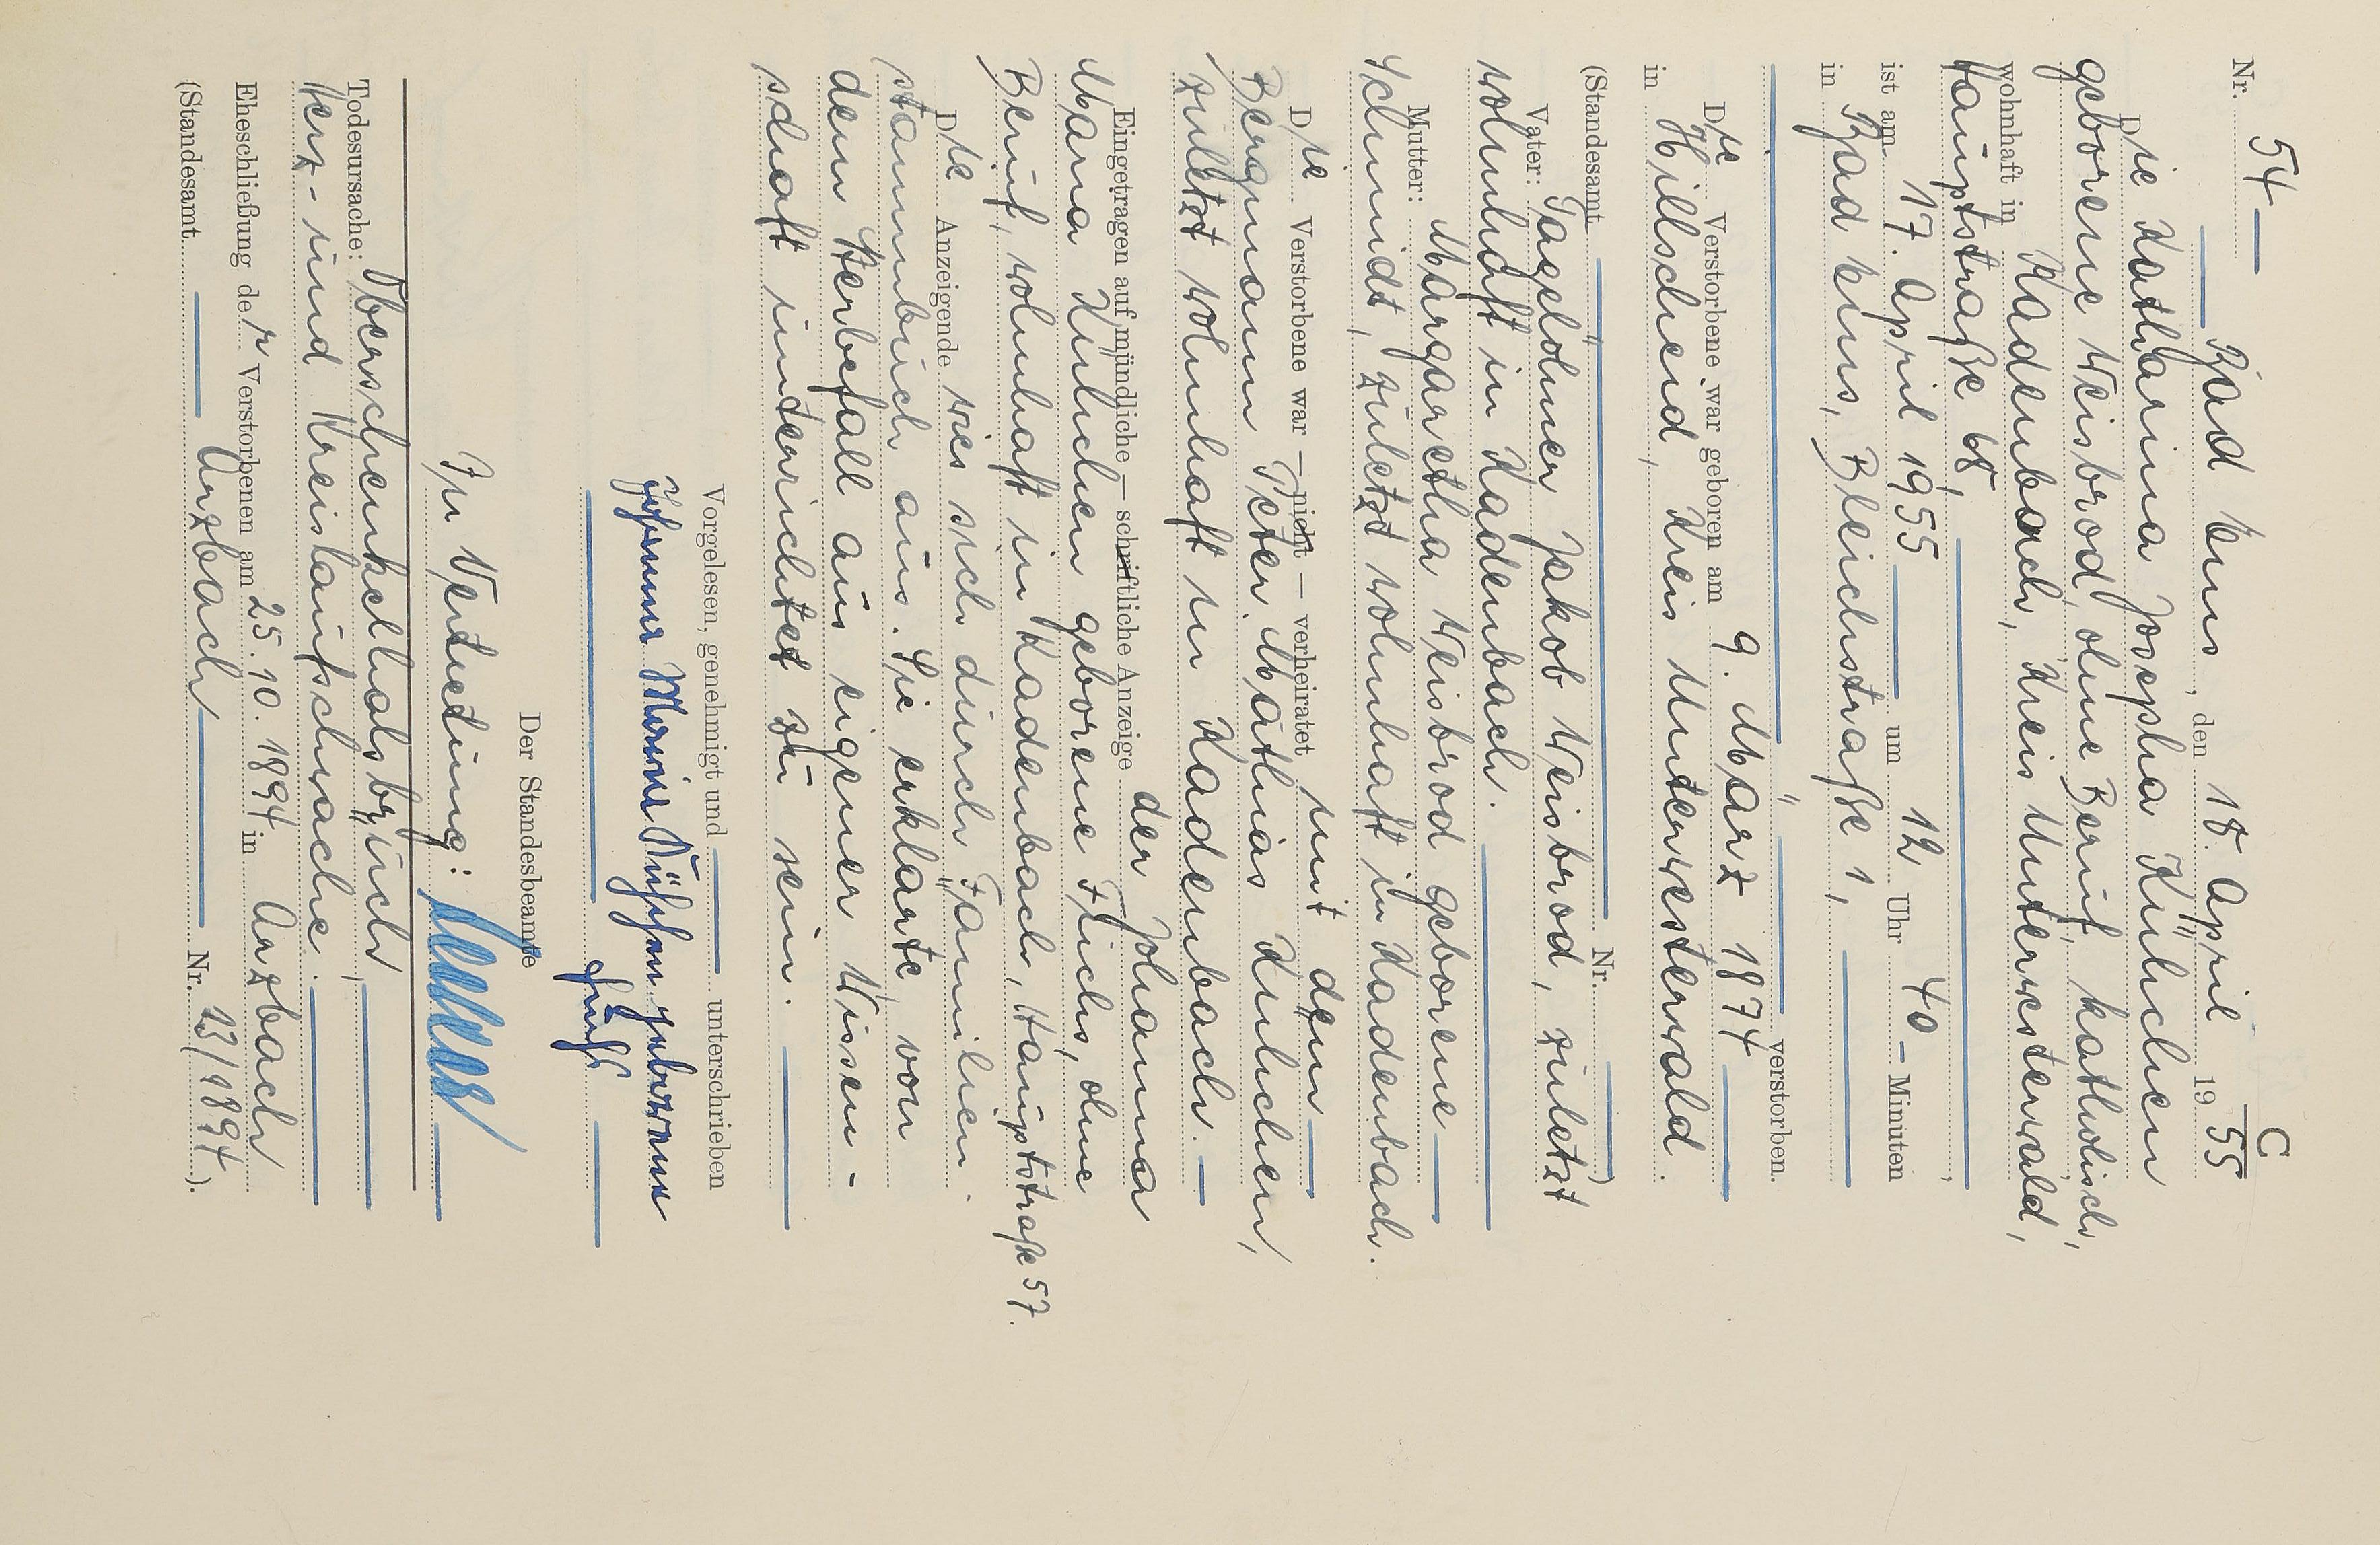 C
Nr. 54
Bad Ems, den 18. April 1955
Die Katharina Josepha Külchen
geborene Weisbrod, ohne Beruf, katholisch,
wohnhaft in Kadenbach, Kreis Unterwesterwald,
Hauptstraße 68,
ist am 17. April 1955 um 12 Uhr 40 Minuten
in Bad Ems, Bleichstraße 1,
" verstorben.
Die Verstorbene war geboren am 9. März 1874
in Hillscheid, Kreis Unterwesterwald.
(Standesamt " Nr. )
Vater: Tagelöhner Jakob Weisbrod, zuletzt
wohnhaft in Kadenbach.
Mutter: Margaretha Weisbrod geborene
Schmidt, zuletzt wohnhaft in Kadenbach.
Die Verstorbene war — nicht — verheiratet mit dem
Bergmann Peter Mathias Külchen,
zuletzt wohnhaft in Kadenbach.
Eingetragen auf mündliche — schriftliche Anzeige der Johanna
Maria Külchen geborene Flichs, ohne
Beruf, wohnhaft in Kadenbach, Hauptstraße 57.
Die Anzeigende wies sich durch Familien-
stammbuch aus. Sie erklärte, von
dem Sterbefall aus eigener Wissen-
schaft unterrichtet zu sein.
Vorgelesen, genehmigt und unterschrieben
Johanna Maria Külchen geborene
Der Standesbeamte
In Vertretung:
Todesursache: Oberschenkelhalsbrüch,
Herz- und Kreislaufschwäche.
Eheschließung der Verstorbenen am 25. 10. 1894 in Arzbach
(Standesamt Arzbach Nr. 13/1894).